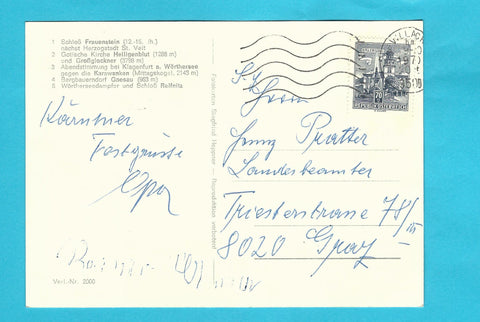 1 Schloß Frauenstein (12.-15. Jh.)
nächst Herzogstadt St. Veit
2 Gotische Kirche Heiligenblut (1288 m)
und Großglockner (3798 m)
3 Abendstimmung bei Klagenfurt a. Wörthersee
gegen die Karawanken (Mittagskogel, 2143 m)
4 Bergbauerndorf
5 Wörtherseedampfer und Schloß Reifnitz
Kärntner
Festgrüsse
Opa
Verl.-Nr. 2000
Farbaufnahme Siegfried
Reproduktion verboten!
VILLACH
REPUBLIK ÖSTERREICH
Herrn
Pratter
Landesbeamter
Triesterstrasse 78/III
8020 Graz